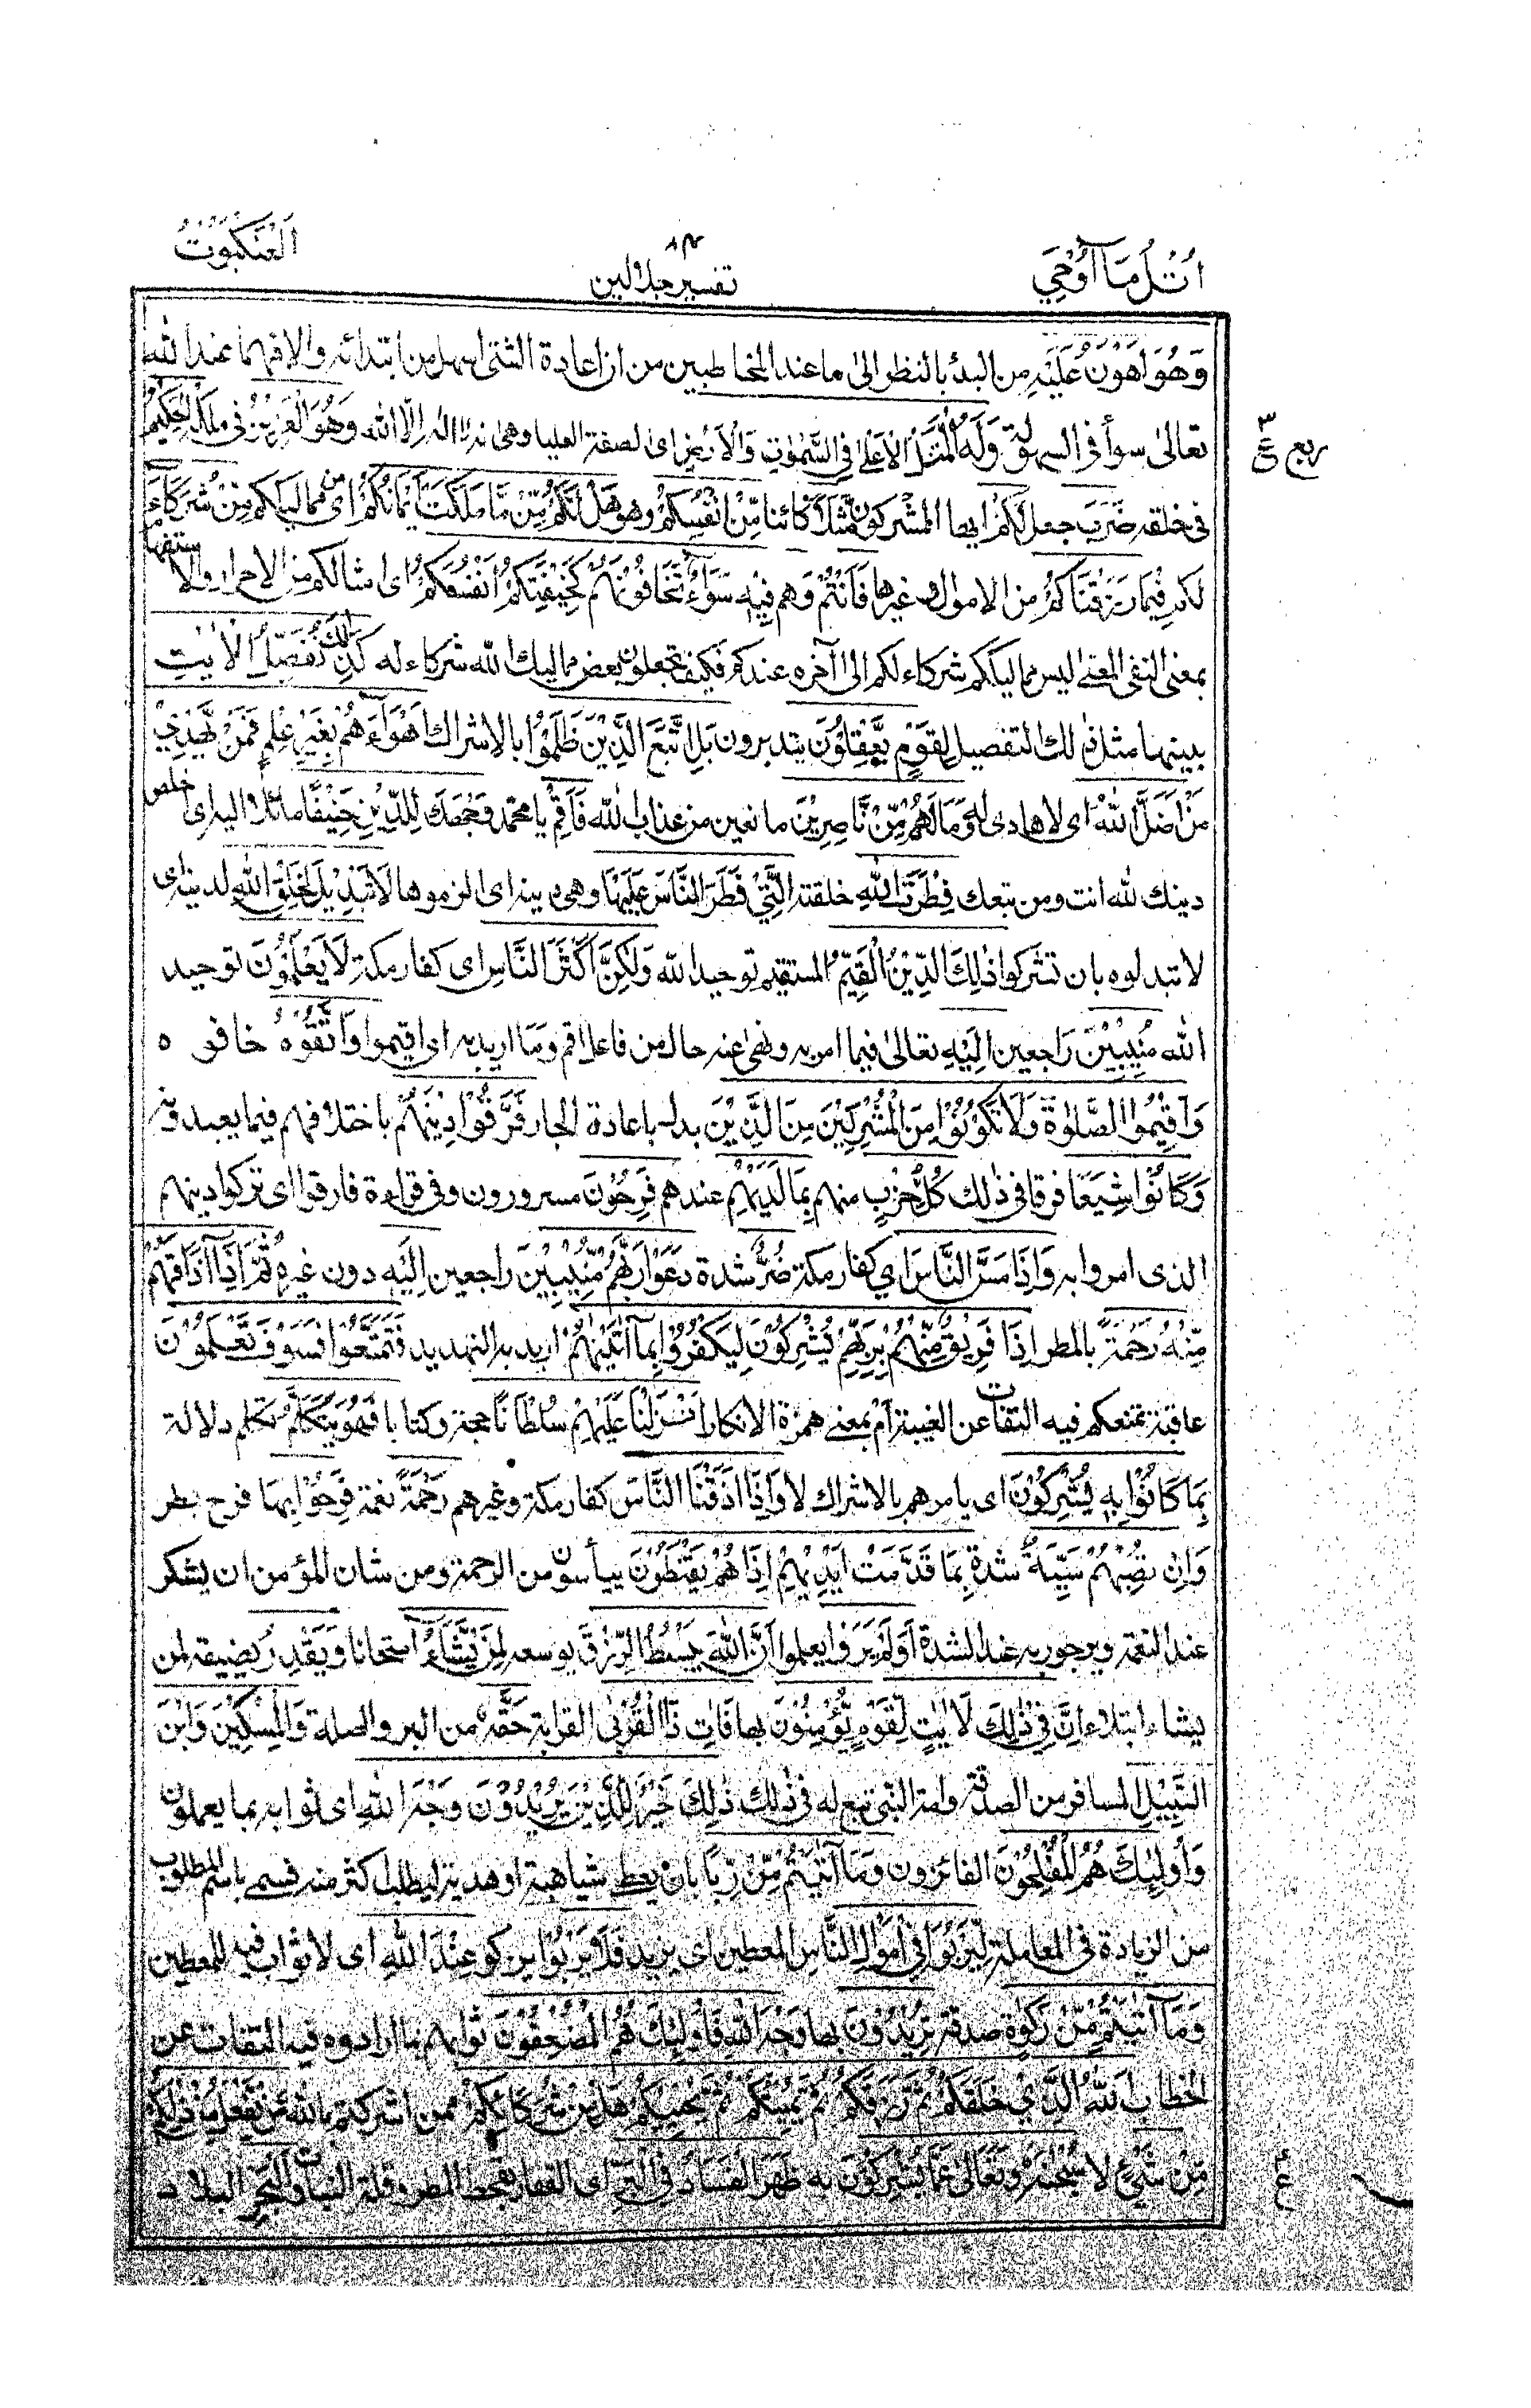 اُتْلُ مَآ اُوْحِيَ
تفسير جلالين
العنكبوت
وَهُوَ اَهْوَنُ عَلَيْهِ من البدأ بالنظر الى ما عند المخاطبين من ان اعادة الشئ اسهل من ابتدائه والا فهما عند الله
تعالىٰ سوأ فى السهولة وَلَهُ الْمَثَلُ الْاَعْلٰى فِي السَّمٰوٰتِ وَالْاَرْضِ اى الصفة العليا وهى انه لا اله الا الله وَهُوَ الْعَزِيْزُ فى ملكه الْحَكِيْمُ
ربع ع ٣
فى خلقه ضَرَبَ جعل لَكُمْ ايها المشركون مَّثَلًا كائنا مِّنْ اَنْفُسِكُمْ وهو هَلْ لَّكُمْ مِّنْ مَّا مَلَكَتْ اَيْمَانُكُمْ اى من مماليككم مِّنْ شُرَكَآءَ
لكم فِيْمَا رَزَقْنَاكُمْ من الاموال وغيرها فَاَنْتُمْ وَهم فِيْهِ سَوَآءٌ تَخَافُوْنَهُمْ كَخِيْفَتِكُمْ اَنْفُسَكُمْ اى امثالكم من الاحرار والاستفهام
بمعنى النفى المعنى ليس مماليككم شركاء لكم الى آخره عندكم فكيف تجعلون بعض مماليك الله شركاء له كَذٰلِكَ نُفَصِّلُ الْاٰيٰتِ
نبينها مثل ذلك التفصيل لِقَوْمٍ يَّعْقِلُوْنَ يتدبرون بَلِ اتَّبَعَ الَّذِيْنَ ظَلَمُوْا بالاشراك اَهْوَآءَهُمْ بِغَيْرِ عِلْمٍ فَمَنْ يَّهْدِيْ
مَنْ اَضَلَّ اللّٰهُ اى لا هادى له وَمَا لَهُمْ مِّنْ نَّاصِرِيْنَ مانعين من عذاب الله فَاَقِمْ يا محمد وَجْهَكَ لِلدِّيْنِ حَنِيْفًا مائلا اليه اى اخلص
دينك لله انت ومن تبعك فِطْرَتَ اللّٰهِ خلقته الَّتِيْ فَطَرَ النَّاسَ عَلَيْهَا وهى دينه اى الزموها لَا تَبْدِيْلَ لِخَلْقِ اللّٰهِ لدينه اى
لا تبدلوه بان تشركوا ذٰلِكَ الدِّيْنُ الْقَيِّمُ المستقيم توحيد الله وَلٰكِنَّ اَكْثَرَ النَّاسِ اى كفار مكة لَا يَعْلَمُوْنَ توحيد
الله مُنِيْبِيْنَ راجعين اِلَيْهِ تعالىٰ فيما امر به ونهى عنه حال من فاعل اقم وما اريد به اى اقيموا وَاتَّقُوْهُ خافوه
وَاَقِيْمُوا الصَّلٰوةَ وَلَا تَكُوْنُوْا مِنَ الْمُشْرِكِيْنَ مِنَ الَّذِيْنَ بدل باعادة الجار فَرَّقُوْا دِيْنَهُمْ باختلافهم فيما يعبدونه
وَكَانُوْا شِيَعًا فرقا فى ذلك كُلُّ حِزْبٍ منهم بِمَا لَدَيْهِمْ عندهم فَرِحُوْنَ مسرورون وفى قراءة فارقوا اى تركوا دينهم
الذى امروا به وَاِذَا مَسَّ النَّاسَ اى كفار مكة ضُرٌّ شدة دَعَوْا رَبَّهُمْ مُّنِيْبِيْنَ راجعين اِلَيْهِ دون غيره ثُمَّ اِذَآ اَذَاقَهُمْ
مِّنْهُ رَحْمَةً بالمطر اِذَا فَرِيْقٌ مِّنْهُمْ بِرَبِّهِمْ يُشْرِكُوْنَ لِيَكْفُرُوْا بِمَآ اٰتَيْنٰهُمْ اريد به التهديد فَتَمَتَّعُوْا فَسَوْفَ تَعْلَمُوْنَ
عاقبة تمتعكم فيه التفات عن الغيبة اَمْ بمعنى همزة الانكار اَنْزَلْنَا عَلَيْهِمْ سُلْطَانًا حجة وكتابا فَهُوَ يَتَكَلَّمُ تكلم دلالة
بِمَا كَانُوْا بِهٖ يُشْرِكُوْنَ اى يامرهم بالاشراك لا وَاِذَا اَذَقْنَا النَّاسَ كفار مكة وغيرهم رَحْمَةً نعمة فَرِحُوْا بِهَا فرح بطر
وَاِنْ تُصِبْهُمْ سَيِّئَةٌ شدة بِمَا قَدَّمَتْ اَيْدِيْهِمْ اِذَا هُمْ يَقْنَطُوْنَ ييأسون من الرحمة ومن شان المؤمن ان يشكر
عند النعمة ويرجو ربه عند الشدة اَوَلَمْ يَرَوْا يعلموا اَنَّ اللّٰهَ يَبْسُطُ الرِّزْقَ يوسعه لِمَنْ يَّشَآءُ امتحانا وَيَقْدِرُ يضيقه لمن
يشاء ابتلاء اِنَّ فِيْ ذٰلِكَ لَاٰيٰتٍ لِّقَوْمٍ يُّؤْمِنُوْنَ بها فَاٰتِ ذَا الْقُرْبٰى القرابة حَقَّهٗ من البر والصلة وَالْمِسْكِيْنَ وَابْنَ
السَّبِيْلِ المسافر من الصدقة وامة النبى تبع له فى ذلك ذٰلِكَ خَيْرٌ لِّلَّذِيْنَ يُرِيْدُوْنَ وَجْهَ اللّٰهِ اى ثوابه بما يعملون
وَاُولٰٓئِكَ هُمُ الْمُفْلِحُوْنَ الفائزون وَمَآ اٰتَيْتُمْ مِّنْ رِّبًا بان يعطى شيا هبة او هدية ليطلب اكثر منه فسمى باسم المطلوب
من الزيادة فى المعاملة لِّيَرْبُوَا۟ فِيْٓ اَمْوَالِ النَّاسِ المعطين اى يزيد فَلَا يَرْبُوْا يزكو عِنْدَ اللّٰهِ اى لا ثواب فيه للمعطين
وَمَآ اٰتَيْتُمْ مِّنْ زَكٰوةٍ صدقة تُرِيْدُوْنَ بها وَجْهَ اللّٰهِ فَاُولٰٓئِكَ هُمُ الْمُضْعِفُوْنَ ثوابهم بما ارادوه فيه التفات عن
الخطاب اَللّٰهُ الَّذِيْ خَلَقَكُمْ ثُمَّ رَزَقَكُمْ ثُمَّ يُمِيْتُكُمْ ثُمَّ يُحْيِيْكُمْ هَلْ مِنْ شُرَكَآئِكُمْ ممن اشركتم بالله مَّنْ يَّفْعَلُ مِنْ ذٰلِكُمْ
مِّنْ شَيْءٍ لا سُبْحٰنَهٗ وَتَعَالٰى عَمَّا يُشْرِكُوْنَ به ظَهَرَ الْفَسَادُ فِي الْبَرِّ اى القفار بقحط المطر وقلة النبات وَالْبَحْرِ البلاد
ع